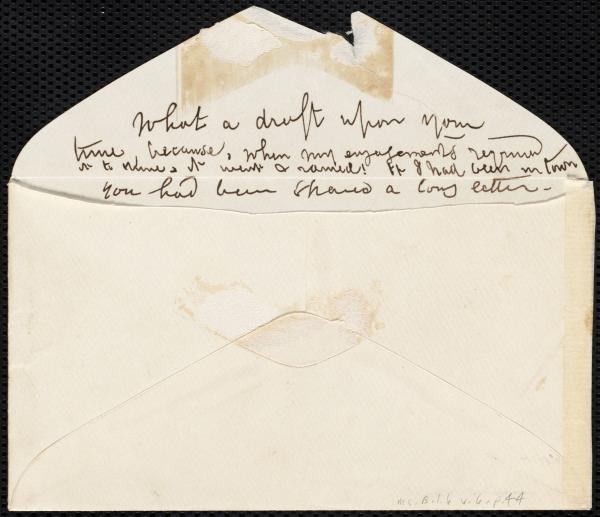 What a draft upon your
time because, when my engagements required
it to shine, it went & rained! If I had been in town
you had been spared a long letter.—
Ms. B.1.6 v.6, p.44